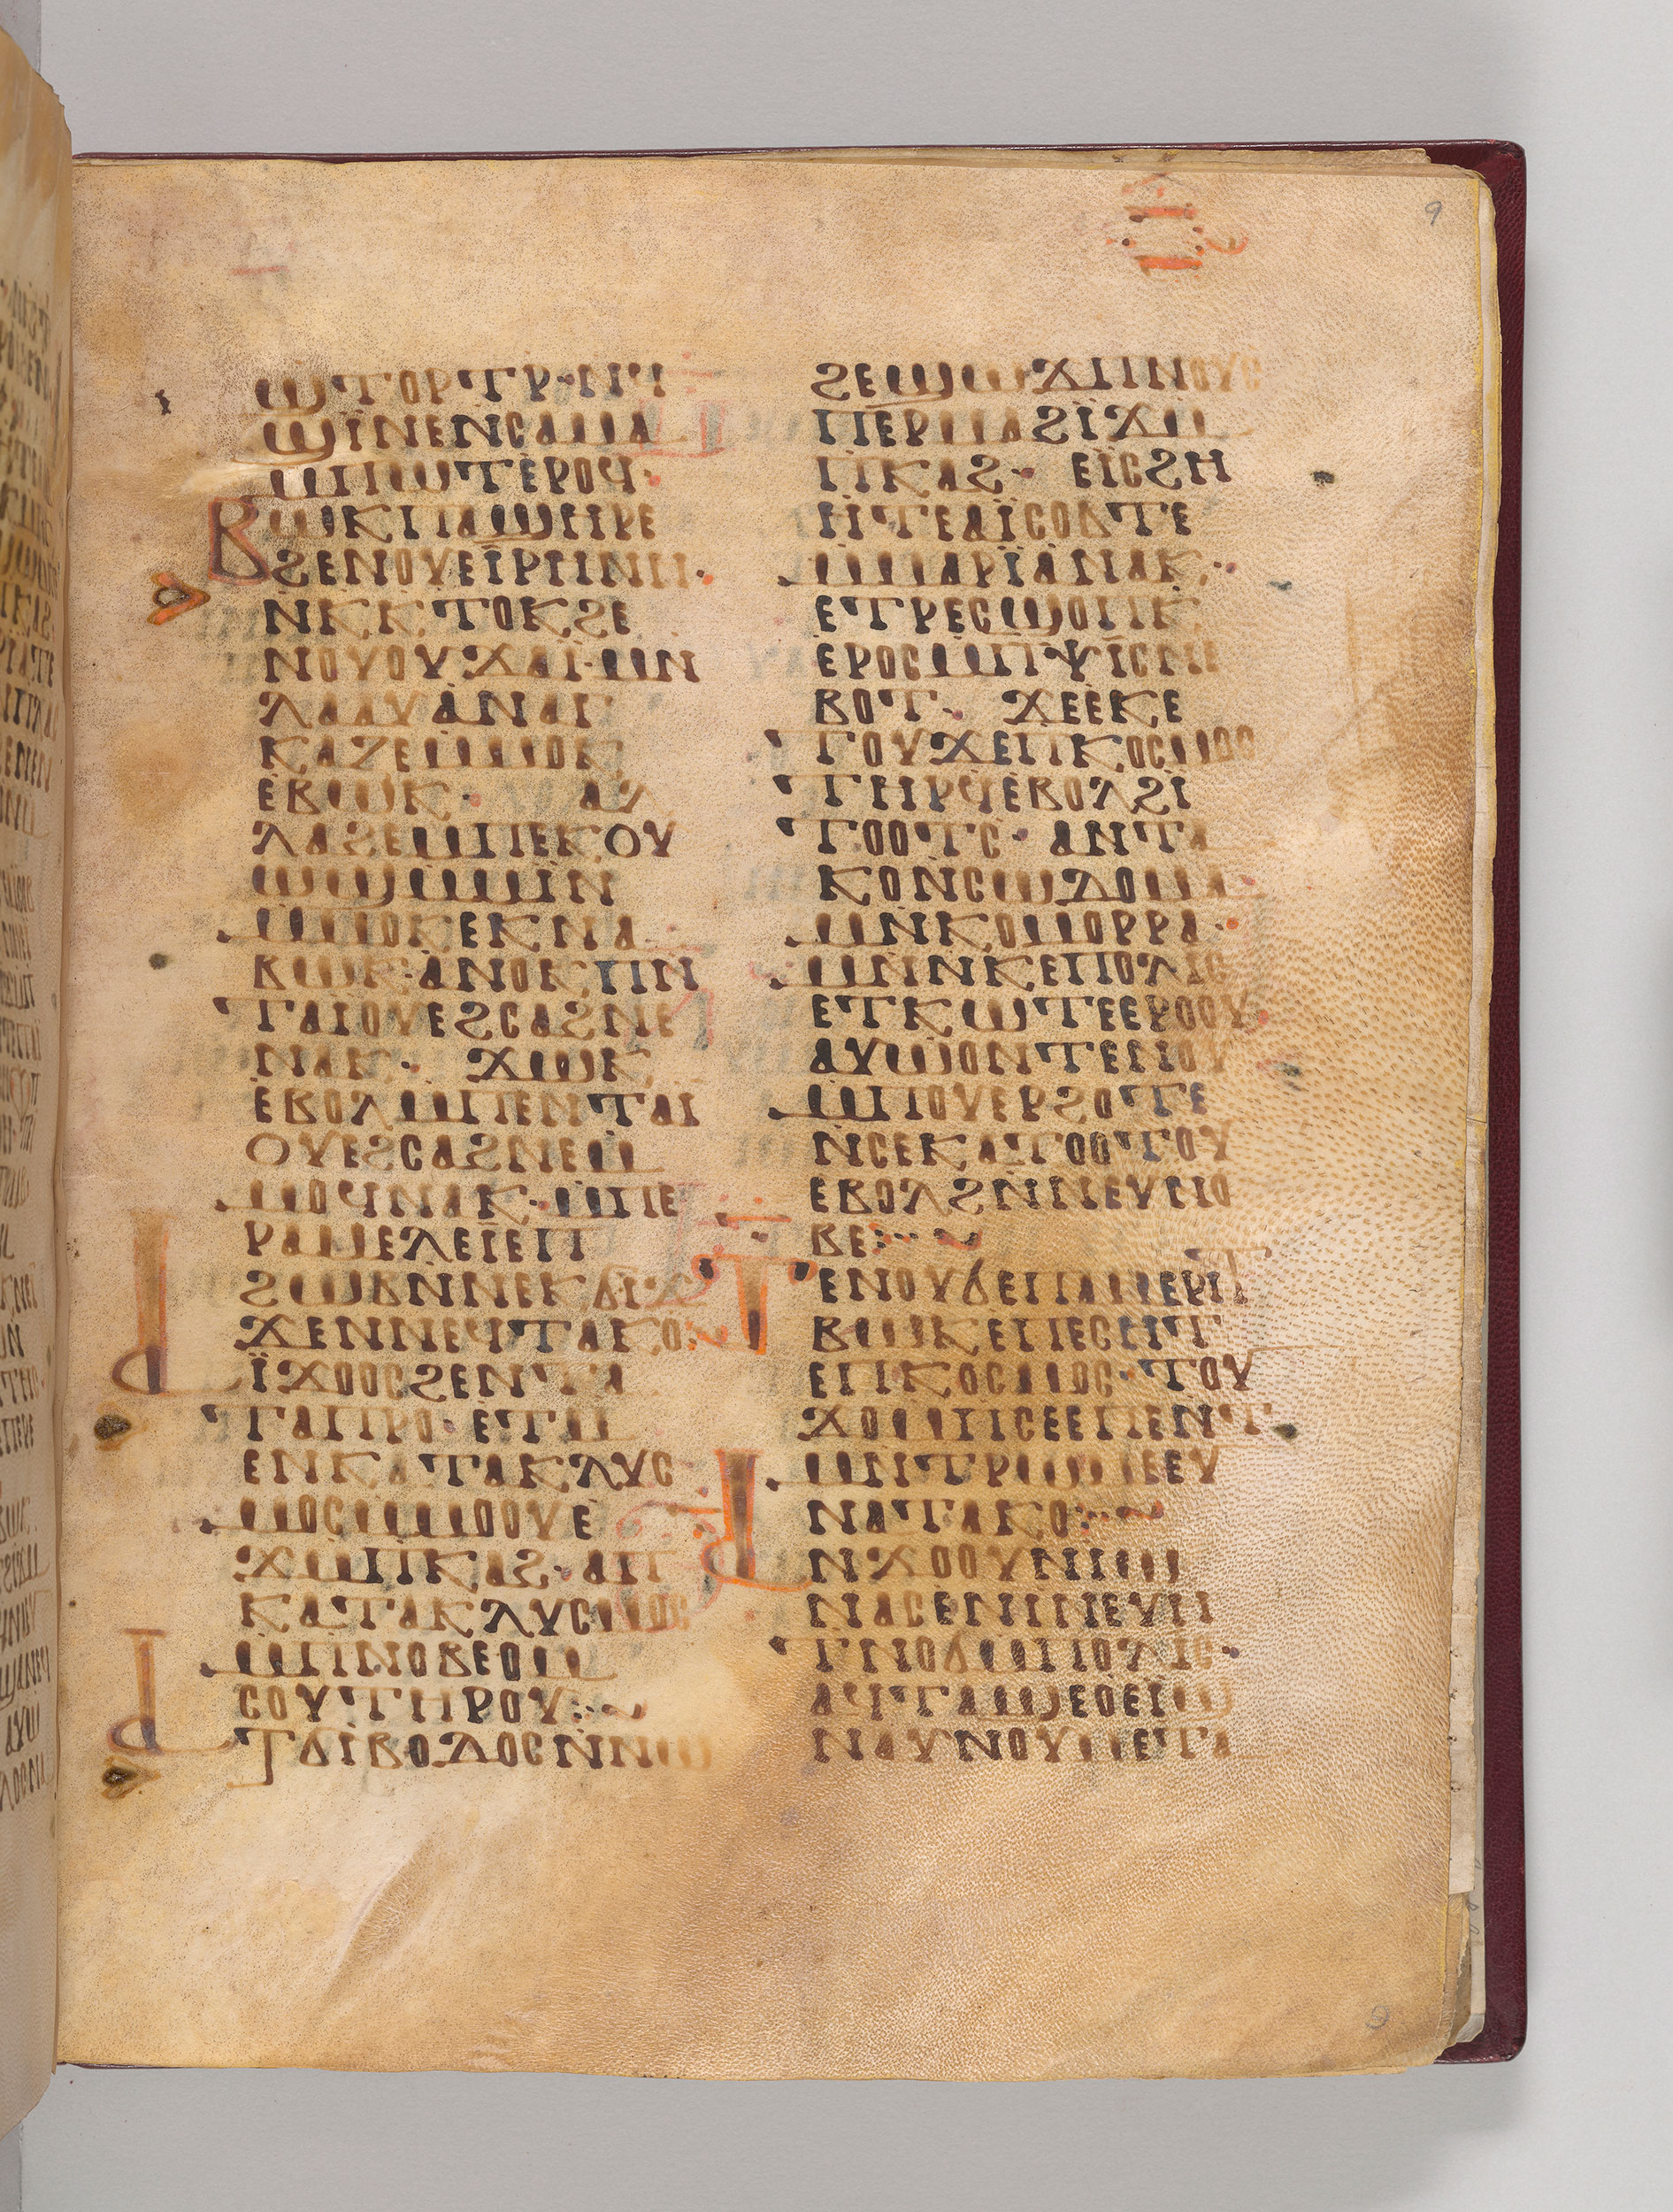 ϣⲧⲟⲣⲧⲣ·ⲛϥ
ϣⲓⲛⲉⲛⲥⲁⲙⲁ
ⲙⲡⲱⲧⲉⲣⲟϥ·
Ⲃⲱⲕⲡⲁϣⲏⲣⲉ
ϩⲉⲛⲟⲩⲉⲓⲣⲏⲛⲏ·
ⲛⲅⲕⲧⲟⲕϩⲉ
ⲛⲟⲩⲟⲩϫⲁⲓ·ⲙⲛ
ⲗⲁⲁⲩⲁⲛⲁⲅ
ⲕⲁⲍⲉⲙⲙⲟⲕ
ⲉⲃⲱⲕ· ⲁⲗ
ⲗⲁϩⲉⲙⲡⲉⲕⲟⲩ
ⲱϣⲙⲙⲓⲛ
ⲙⲙⲟⲕⲉⲕⲛⲁ
ⲃⲱⲕ·ⲁⲛⲟⲕⲡⲛ
ⲧⲁⲓⲟⲩⲉϩⲥⲁϩⲛⲉ
ⲛⲁⲕ· ϫⲱⲕ
ⲉⲃⲟⲗⲙⲡⲉⲛⲧⲁⲓ
ⲟⲩⲉϩⲥⲁϩⲛⲉⲙ
ⲙⲟϥⲛⲁⲕ·ⲙⲡⲉ
ⲣⲁⲙⲉⲗⲉⲓⲉⲡ
ϩⲱⲃⲛⲛⲉⲕϭⲓϫ
ϫⲉⲛⲛⲉϥⲧⲁⲕⲟ:~
Ⲁⲓϫⲟⲟⲥϩⲉⲛⲧⲁ
ⲧⲁⲡⲣⲟ·ⲉⲧⲙ
ⲉⲛⲕⲁⲧⲁⲕⲗⲩⲥ
ⲙⲟⲥⲙⲙⲟⲟⲩⲉ
ϫⲙⲡⲕⲁϩ·ⲁⲡ
ⲕⲁⲧⲁⲕⲗⲩⲥⲙⲟⲥ
ⲙⲡⲛⲟⲃⲉⲟⲙ
ⲥⲟⲩⲧⲏⲣⲟⲩ:~
Ⲁⲧⲇⲓⲃⲟⲗⲟⲥⲛⲛⲱ
ϩⲉϣⲱϫⲡⲛⲟⲩⲥ
ⲡⲉⲣⲙⲁϩⲓϫⲙ
ⲡⲕⲁϩ· ⲉⲓⲥϩⲏ
ⲏⲧⲉⲁⲓⲥⲟⲃⲧⲉ
ⲙⲙⲁⲣⲓⲁⲛⲁⲕ·
ⲉⲧⲣⲉⲥϣⲟⲡⲕ
ⲉⲣⲟⲥⲙⲡⲯⲓⲥⲛⲉ
ⲃⲟⲧ· ϫⲉⲉⲕⲉ
ⲧⲟⲩϫⲉⲡⲕⲟⲥⲙⲟⲥ
ⲧⲏⲣϥⲉⲃⲟⲗϩⲓ
ⲧⲟⲟⲧⲥ· ⲁⲛⲧⲁ
ⲕⲟⲛⲥⲱⲇⲟⲙⲁ
ⲙⲛⲕⲟⲙⲟⲣⲣⲁ·
ⲙⲛⲛⲕⲉⲡⲟⲗⲓⲥ
ⲉⲧⲕⲱⲧⲉⲉⲣⲟⲟⲩ
ⲁⲩⲱⲟⲛⲧⲉⲛⲟⲩ
ⲙⲡⲟⲩⲉⲣϩⲟⲧⲉ
ⲛⲥⲉⲕⲁⲧⲟⲟⲧⲟⲩ
ⲉⲃⲟⲗϩⲛⲛⲉⲩⲛⲟ
ⲃⲉ:~
Ⲧⲉⲛⲟⲩϭⲉⲡⲁⲙⲉⲣⲓⲧ
ⲃⲱⲕⲉⲡⲉⲥⲏⲧ
ⲉⲡⲕⲟⲥⲙⲟⲥ·ⲧⲟⲩ
ϫⲟⲙⲡⲥⲉⲉⲡⲉⲛⲧ
ⲙⲛⲧⲣⲱⲙⲉⲉⲩ
ⲛⲁⲧⲁⲕⲟ:~
Ⲁⲛϫⲟⲟⲩⲛⲓⲱ
ⲛⲁⲥⲉⲛⲓⲛⲉⲩⲏ
ⲧⲛⲟϭⲙⲡⲟⲗⲓⲥ·
ⲁϥⲧⲁϣⲉⲟⲉⲓϣ
ⲛⲁⲩⲛⲟⲩⲙⲉⲧⲁ